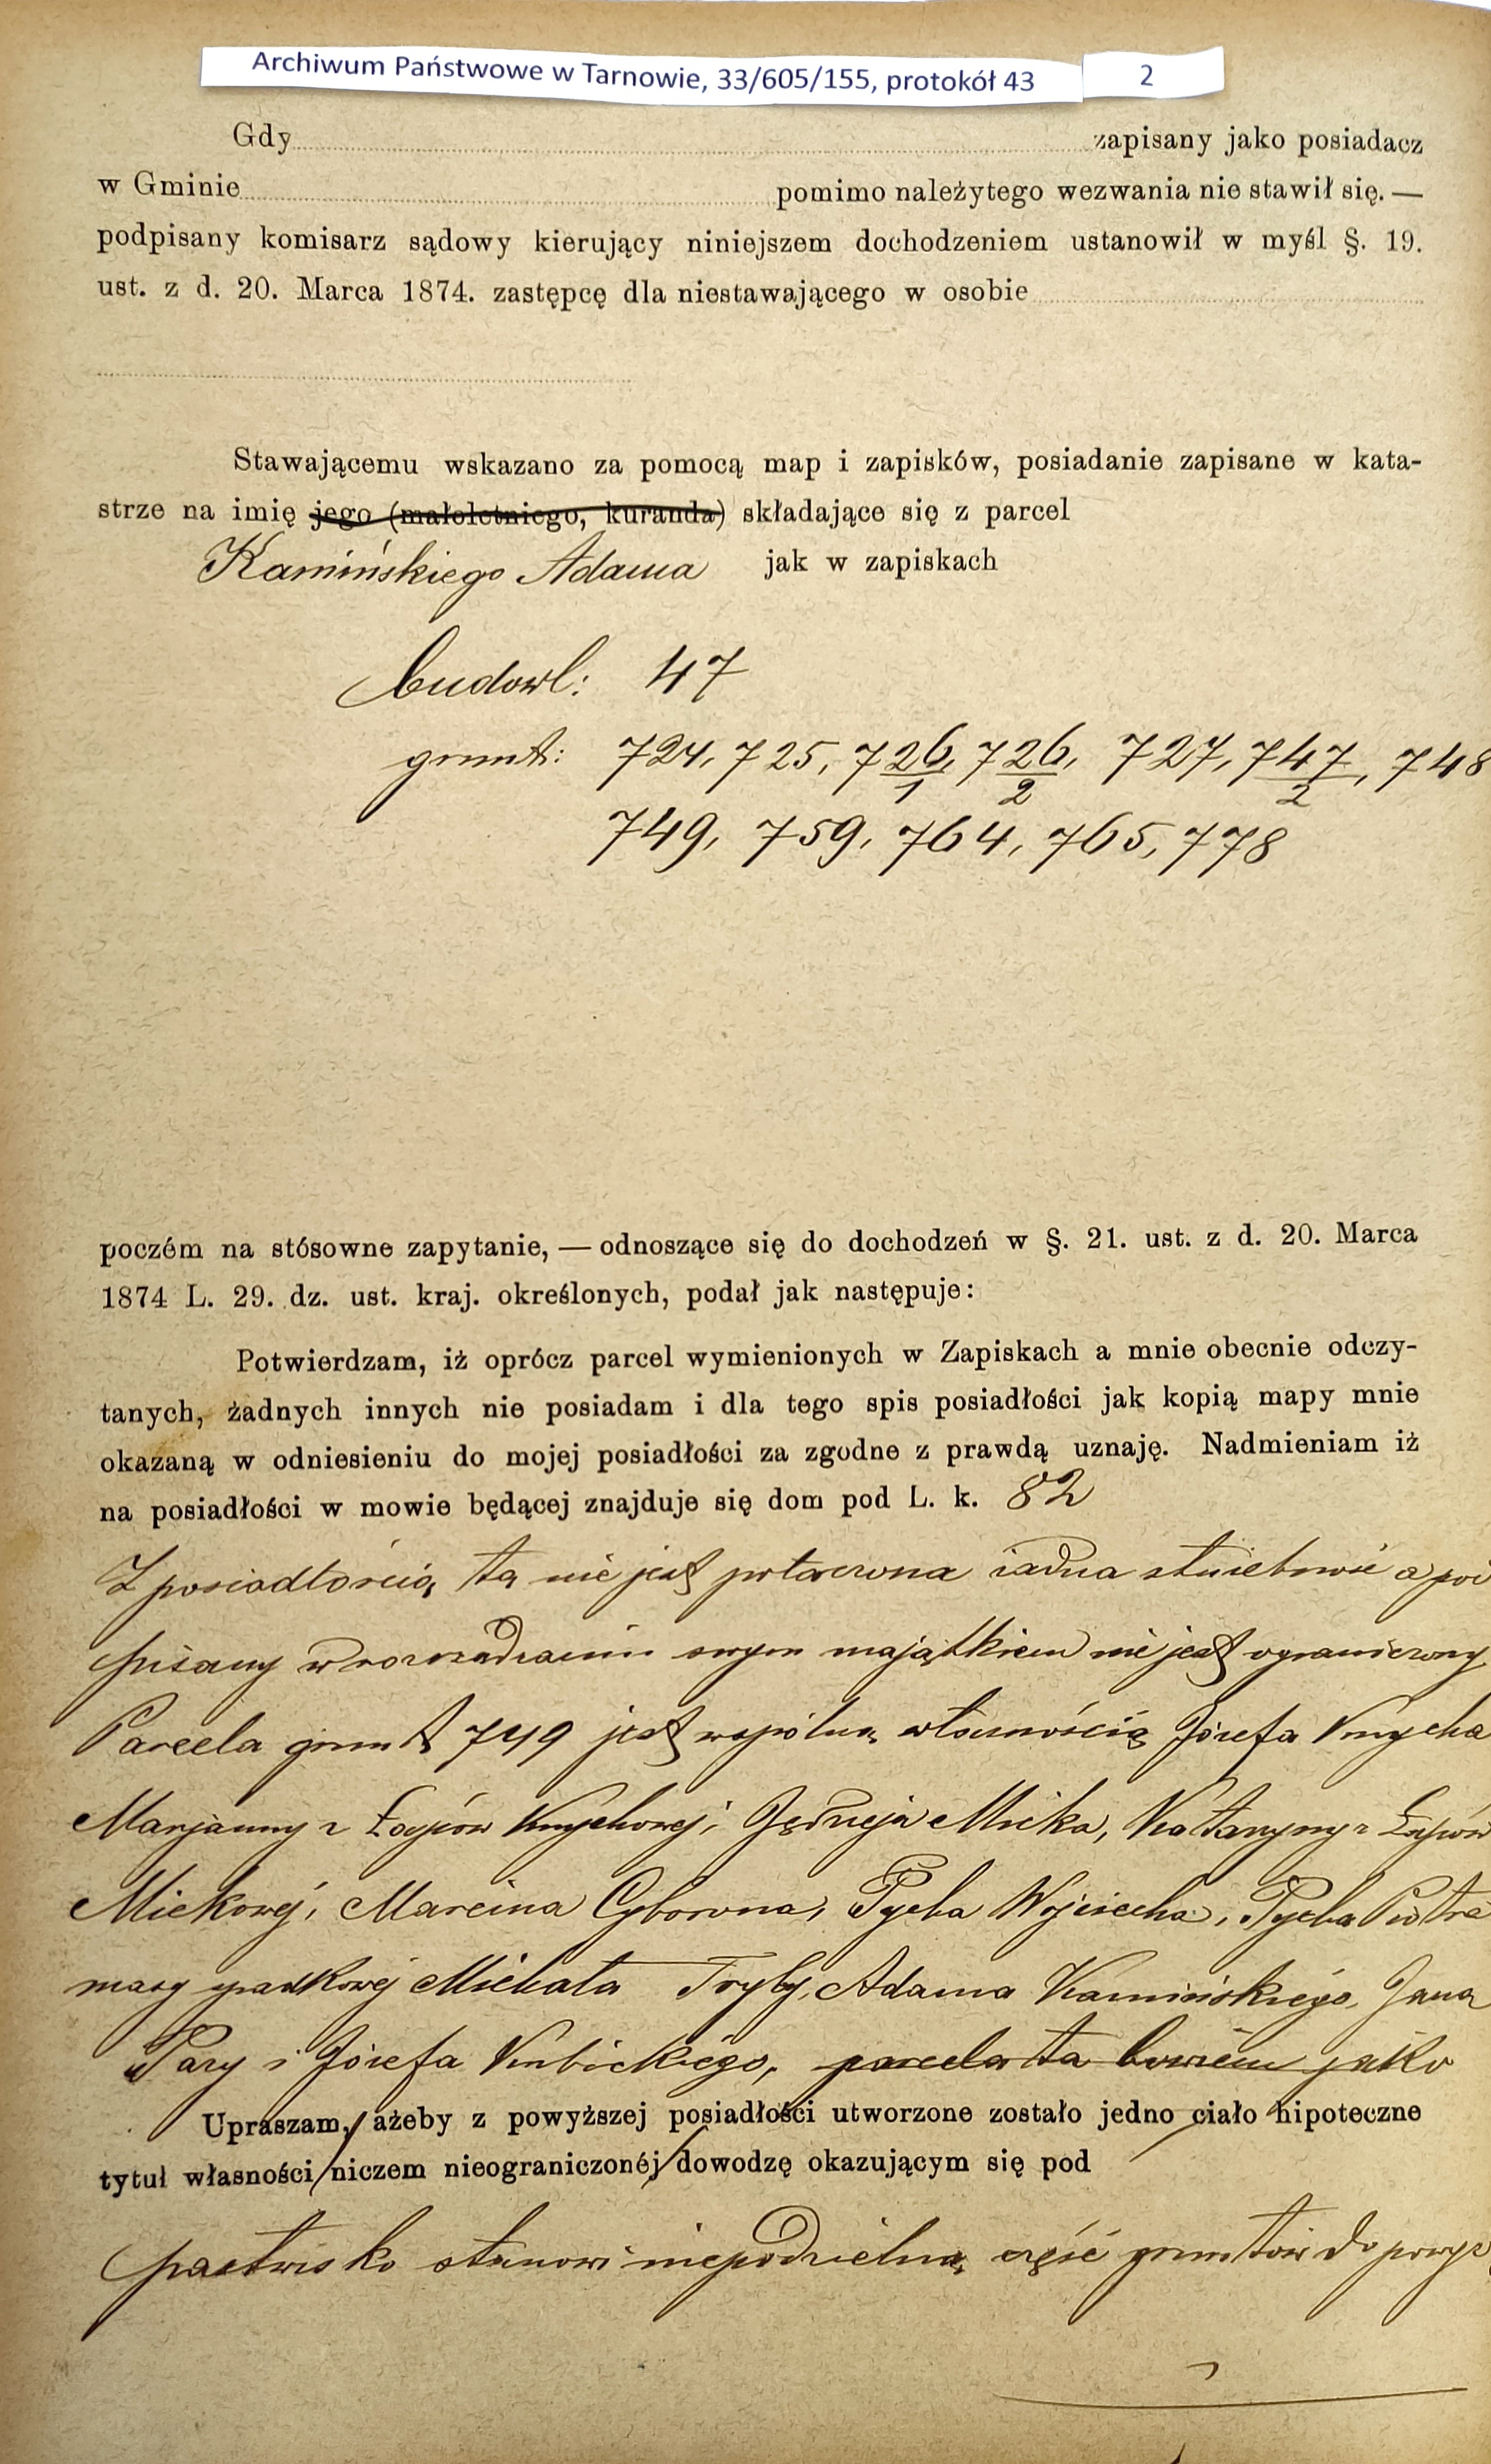 Archiwum Państwowe w Tarnowie, 33/605/155, protokół 43 2
Gdy zapisany jako posiadacz
w Gminie pomimo należytego wezwania nie stawił się. —
podpisany komisarz sądowy kierujący niniejszem dochodzeniem ustanowił w myśl §. 19.
ust. z d. 20. Marca 1874. zastępcę dla niestawającego w osobie
Stawającemu wskazano za pomocą map i zapisków, posiadanie zapisane w kata-
strze na imię jego (małoletniego, kuranda) składające się z parcel
Kamińskiego Adama jak w zapiskach
budowl: 47
grunt: 724, 725, 726/1, 726/2, 727, 747/2, 748
749, 759, 764, 765, 778
poczém na stósowne zapytanie, — odnoszące się do dochodzeń w §. 21. ust. z d. 20. Marca
1874 L. 29. dz. ust. kraj. określonych, podał jak następuje:
Potwierdzam, iż oprócz parcel wymienionych w Zapiskach a mnie obecnie odczy-
tanych, żadnych innych nie posiadam i dla tego spis posiadłości jak kopią mapy mnie
okazaną w odniesieniu do mojej posiadłości za zgodne z prawdą uznaję. Nadmieniam iż
na posiadłości w mowie będącej znajduje się dom pod L. k. 82
Z posiadłością tą nie jest połaczona żadna służebność a pod
pisany w rozrządzaniu swym majątkiem nie jest ograniczony
Parcela grunt 749 jest wspólną własnością Józefa Knycha
Marjanny z Łazów Knychowej, Jędrzeja Micka, Katarzyny z
Mickowej, Marcina Cyborona, Pycha Wojciecha, Pycha Piotra
masy spadkowej Michała Tryby, Adama Kamińskiego, Jana
Pary i Józefa Kubickiego, parcela ta bowiem jako
Upraszam, ażeby z powyższej posiadłości utworzone zostało jedno ciało hipoteczne
tytuł własności niczem nieograniczonéj dowodzę okazującym się pod
pastwisko stanowi niepodzielną część gruntów do powyż